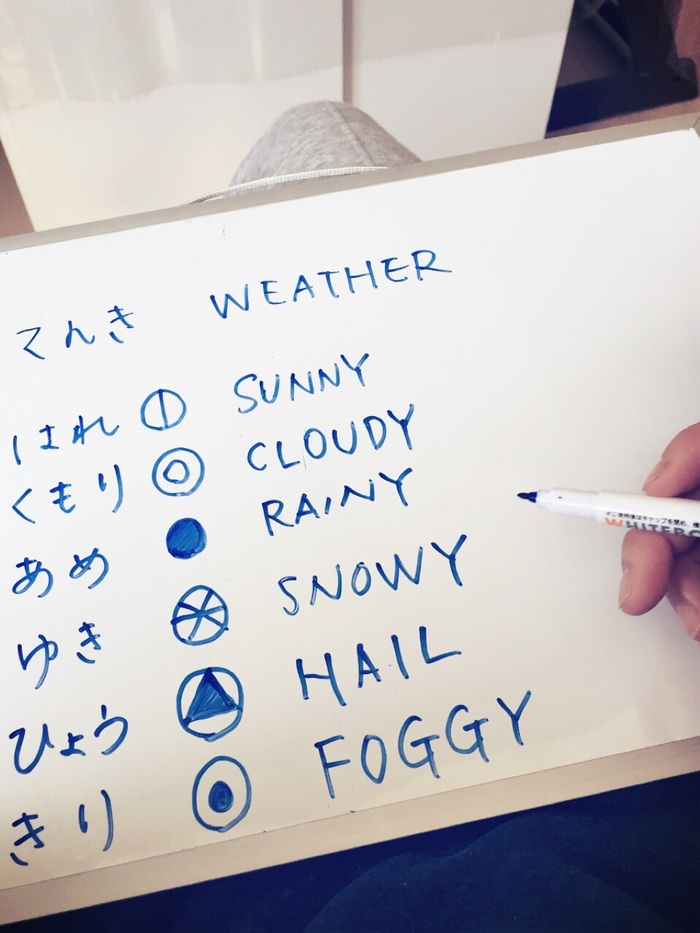 てんき WEATHER
はれ SUNNY
くもり CLOUDY
あめ RAINY
ゆき SNOWY
ひょう HAIL
きり FOGGY